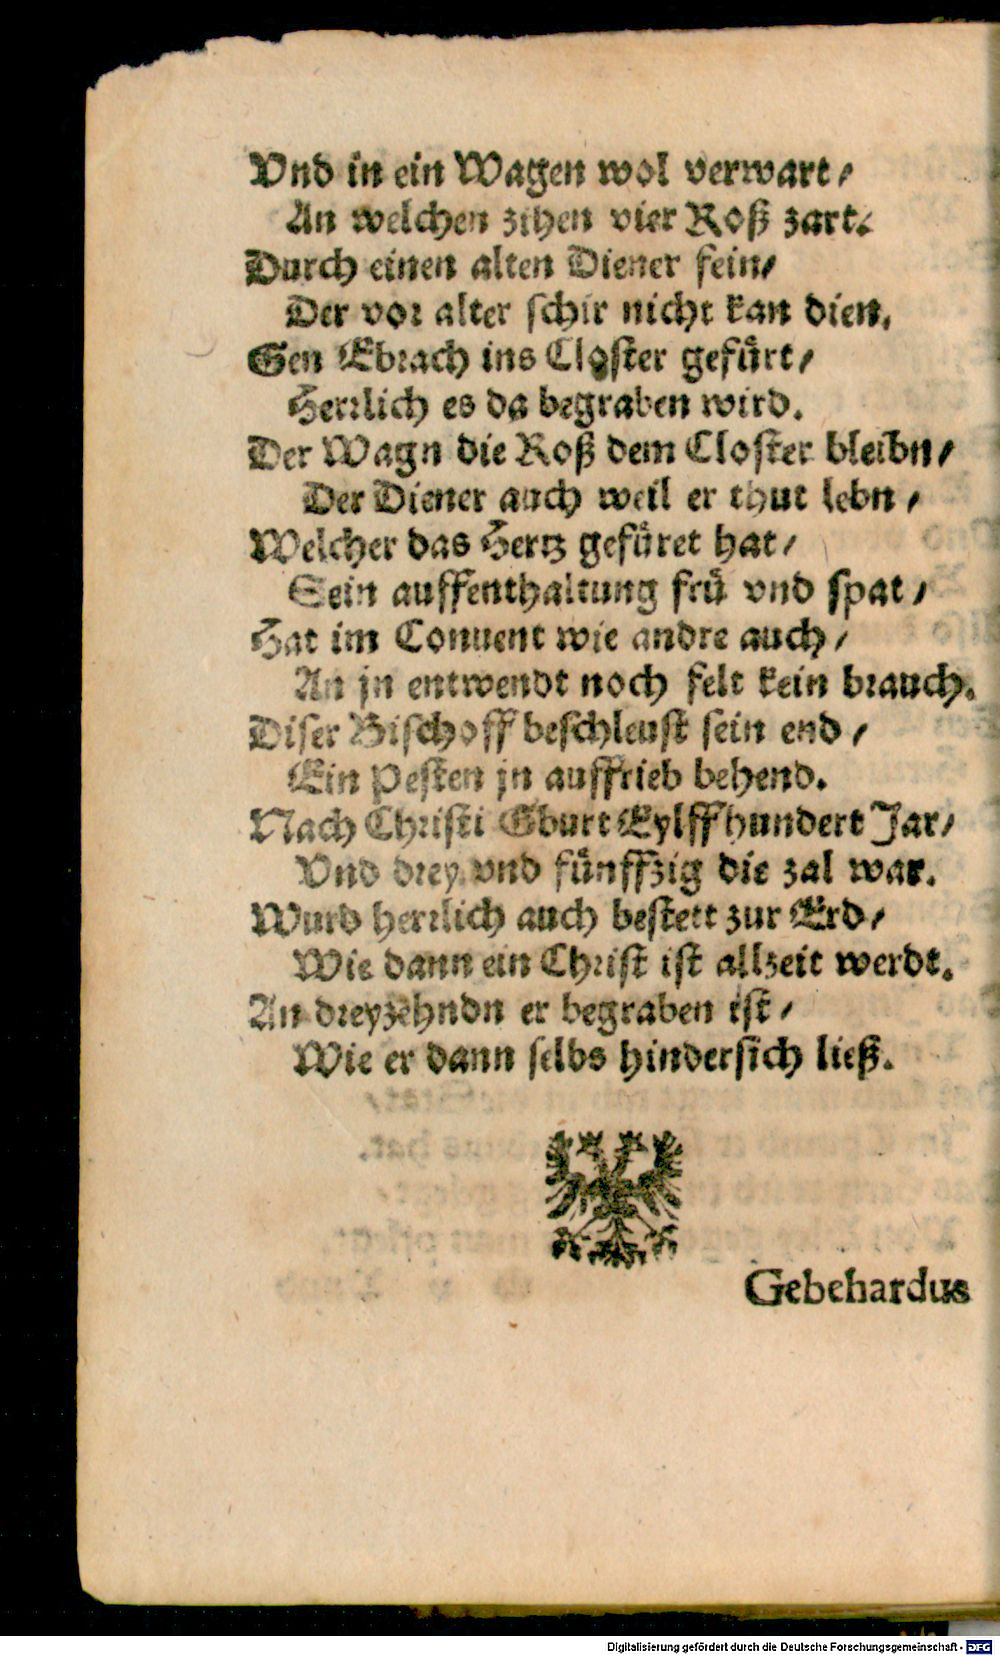 Vnd in ein Wagen wol verwart/
An welchen zihen vier Roß zart.
Durch einen alten Diener fein/
Der vor alter schir nicht kan dien.
Gen Ebrach ins Closter gefuͤrt/
Herrlich es da begraben wird.
Der Wagn die Roß dem Closter bleibn/
Der Diener auch weil er thut lebn/
Welcher das Hertz gefuͤret hat/
Sein auffenthaltung fruͤ vnd spat/
Hat im Conuent wie andre auch/
An jn entwendt noch felt kein brauch.
Diser Bischoff beschleust sein end/
Ein Pesten jn auffrieb behend.
Nach Christi Gburt Eylffhundert Jar/
Vnd drey vnd fuͤnffzig die zal war.
Wurd herrlich auch bestett zur Erd/
Wie dann ein Christ ist allzeit werdt.
An dreyzehndn er begraben ist/
Wie er dann selbs hindersich ließ.
Gebehardus
Digitalisierung gefördert durch die Deutsche Forschungsgemeinschaft - DFG